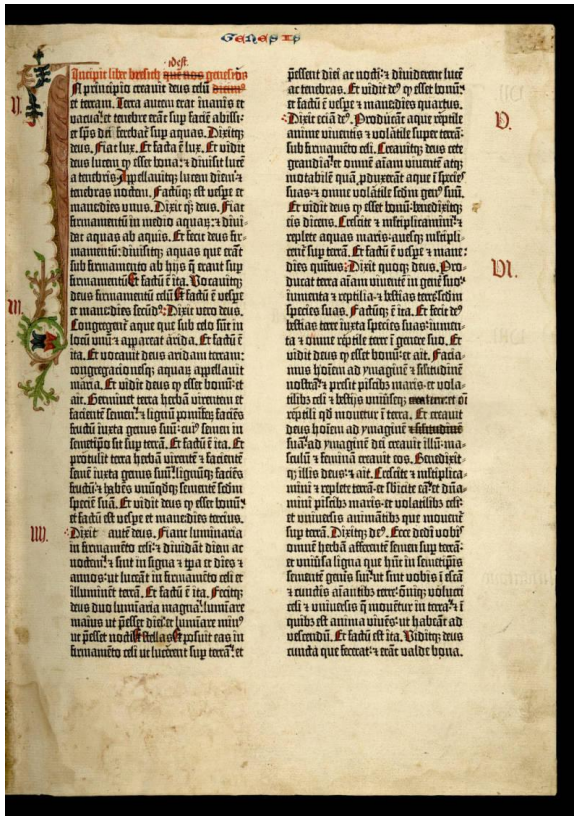 GENESIS
id est
Incipit liber bresich quē nos genesis
In principio creavit deus celū dicimꝰ
et terram. Terra autem erat inanis et
vacua: et tenebre erāt sup faciē abissi:
et spūs dn̄i ferebat̄ sup aquas. Dixitqꝫ
deus. Fiat lux. Et facta ē lux. Et vidit
deus lucem ꝙ esset bona: ⁊ divisit lucē
a tenebris. Appellavitqꝫ lucem diem ⁊
tenebras noctem. Factūqꝫ est vespe et
mane dies unus. Dixit qꝫ deus. Fiat
firmamentū in medio aquaꝝ: ⁊ divi-
dat aquas ab aquis. Et fecit deus fir-
mamentū: divisitqꝫ aquas que erāt
sub firmamento ab hijs q̄ erant sup
firmamentū: et factū ē ita. Vocavitqꝫ
deus firmamentū celū: et factū ē vespe
et mane dies secūdꝰ. Dixit vero deus.
Congregent̄ aque que sub celo sūt in
locū unū ⁊ appareat arida. Et factū ē
ita. Et vocavit deus aridam terram:
congregacionesqꝫ aquaꝝ appellavit
maria. Et vidit deus ꝙ esset bonū: et
ait. Germinet terra herbā virentem et
facientē semen: ⁊ lignū pomifeꝝ faciēs
fructū iuxta genus suū: cuiꝰ semen in
semetipo sit sup terrā. Et factū ē ita. Et
protulit terra herbā virentē ⁊ facientē
semē iuxta genus suū: lignūqꝫ faciēs
fructū ⁊ habēs unūqdqꝫ sementē scdm
speciē suā. Et vidit deus ꝙ esset bonū:
et factū est vespe et mane dies tercius.
Dixit autē deus. Fiant luminaria
in firmamēto celi: ⁊ dividāt diem ac
noctem: ⁊ sint in signa ⁊ tpa et dies ⁊
annos: ut luceāt in firmamēto celi et
illuminēt terrā. Et factū ē ita. Fecitqꝫ
deus duo luminaria magna: luminare
maius ut pesset diei: et luminare minꝰ
ut pesset nocti: ⁊ stellas: et posuit eas in
firmamēto celi ut lucerent sup terrā: et
pessent diei ac nocti: ⁊ dividerent lucē
ac tenebras. Et vidit deꝰ ꝙ esset bonū:
et factū ē vespe ⁊ mane dies quartus.
Dixit eciā deꝰ. Producāt aque reptile
anime viventis ⁊ volatile super terrā:
sub firmamēto celi. Creavitqꝫ deus cete
grandia: et omnē aīam viventē atqꝫ
motabilē quā pduxerāt aque ī species
suas: ⁊ omne volatile scdm genꝰ suū.
Et vidit deus ꝙ esset bonū: benedixitqꝫ
eis dicens. Crescite ⁊ mltiplicamini: ⁊
replete aquas maris: avesqꝫ mltipli-
cent̄ sup terrā. Et factū ē vespe ⁊ mane:
dies quītus. Dixit quoqꝫ deus. Pro-
ducat terra aīam viventē in genē suo:
iumenta ⁊ reptilia: ⁊ bestias terre scdm
species suas. Factūqꝫ ē ita. Et fecit deꝰ
bestias terre iuxta species suas: iumen-
ta ⁊ omne reptile terre ī genere suo. Et
vidit deus ꝙ esset bonū: et ait. Facia-
mus hoīem ad ymaginē ⁊ silitudinē
nostrā: ⁊ presit piscibꝫ maris: et vola-
tilibꝫ celi ⁊ bestijs universeqꝫ creature: et oī
reptili qd movetur ī terra. Et creavit
deus hoīem ad ymaginē ⁊ silitudinē
suā: ad ymaginē dei creavit illū: ma-
sculū ⁊ feminā creavit eos. Benedixit-
qꝫ illis deus: ⁊ ait. Crescite ⁊ mltiplica-
mini ⁊ replete terrā: et sbicite eā: et dn̄a-
mini piscibꝫ maris: et volatilibꝫ celi:
et universis animātibꝫ que movent̄
sup terrā. Dixitqꝫ deꝰ. Ecce dedi vobis
omnē herbā afferentē semen sup terrā:
et universa ligna que hn̄t in semetipis
sementē genis sui: ut sint vobis ī escā
⁊ cunctis aīantibꝫ terre: oīniqꝫ volucri
celi ⁊ universis q̄ movētur in terra: ⁊ ī
quibꝫ est anima vivēs: ut habeāt ad
vescendū. Et factū est ita. Viditqꝫ deus
cuncta que fecerat: ⁊ erāt valde bona.
II.
III.
IIII.
V.
VI.